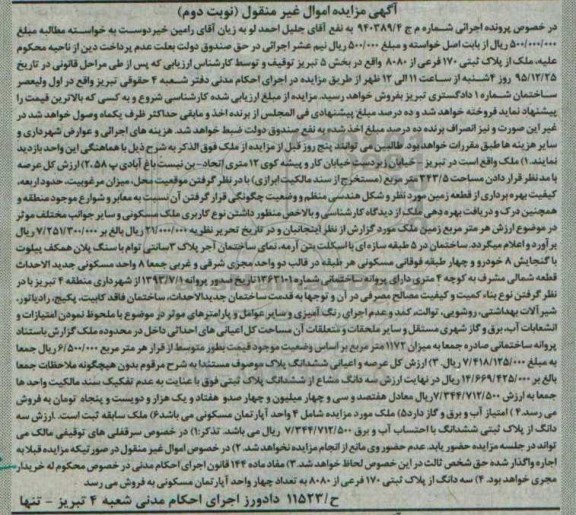 آگهی مزایده اموال غیر منقول (نوبت دوم)
در خصوص پرونده اجرائی شماره م ج ۹۴۰۳۸۹/۴ به نفع آقای جلیل احمد لو به زیان آقای رامین خیردوست به خواسته مطالبه مبلغ
۵۰۰/۰۰۰/۰۰۰ ریال از بابت اصل خواسته و مبلغ ۵۰۰/۰۰۰ ریال نیم عشر اجرائی در حق صندوق دولت بعلت عدم پرداخت دین از ناحیه محکوم
علیه، ملک از پلاک ثبتی ۱۷۰ فرعی از ۸۰۸۰ واقع در بخش ۵ تبریز توقیف و توسط کارشناس ارزیابی که پس از طی مراحل قانونی در تاریخ
۹۵/۱۲/۲۵ روز ۴شنبه از ساعت ۱۱ الی ۱۲ ظهر از طریق مزایده در اجرای احکام مدنی دفتر شعبه ۴ حقوقی تبریز واقع در اول ولیعصر
ساختمان شماره ۱ دادگستری تبریز بفروش خواهد رسید. مزایده از مبلغ ارزیابی شده کارشناسی شروع و به کسی که بالاترین قیمت را
پیشنهاد نماید فروخته خواهد شد و ده درصد مبلغ پیشنهادی فی المجلس از برنده اخذ و مابقی حداکثر ظرف یکماه وصول خواهد شد در
غیر این صورت و نیز انصراف برنده ده درصد مبلغ اخذ شده به نفع صندوق دولت ضبط خواهد شد. هزینه های اجرائی و عوارض شهرداری و
سایر هزینه ها طبق مقررات خواهد بود. طالبین می توانند پنج روز قبل از مزایده از ملک فوق الذکر به شرح ذیل با هماهنگی این واحد بازدید
نمایند. ۱) ملک واقع است در تبریز - خیابان زبردست خیابان کار و پیشه کوی ۱۲ متری اتحاد - بن بست باغ آبادی پ ۲.۵۸) ارزش کل عرصه
با مد نظر قرار دادن مساحت ۳۴۳/۵ متر مربع (مستخرج از سند مالکیت ابرازی) با در نظر گرفتن موقعیت محل، میزان مرغوبیت، حدود اربعه،
کیفیت بهره برداری از قطعه زمین مورد نظر و شکل هندسی منظم و وضعیت چگونگی قرار گرفتن آن نسبت به معابر و شوارع موجود منطقه و
همچنین درک و دریافت بهره دهی ملک از دیدگاه کارشناسی و بالاخص منظور داشتن نوع کاربری ملک مسکونی و سایر جوانب مختلف موثر
در موضوع ارزش هر متر مربع زمین ملک مورد گزارش از نظر اینجانبان و در تاریخ تحریر نظریه ۲۱/۰۰۰/۰۰۰ ریال بالغ بر ۷/۲۵۷/۳۰۰/۰۰۰ ریال
بر آورد و اعلام میگردد. ساختمان در ۵ طبقه سازه ای با اسکلت بتن آرمه، نمای ساختمان آجر پلاک ۳ سانتی توام با سنگ پلان همکف پیلوت
با گنجایش ۸ خودرو و چهار طبقه فوقانی مسکونی هر طبقه در قالب دو واحد مجزی شرقی و غربی جمعا ۸ واحد مسکونی جدید الاحداث
قطعه شمالی مشرف به کوچه ۴ متری دارای پروانه ساختمانی شماره ۱۲۶۳۱۰۱ تاریخ صدور پروانه ۱۳۹۳/۷/۱ از شهرداری منطقه ۴ تبریز با در
نظر گرفتن نوع بناء، کمیت و کیفیت مصالح مصرفی در آن و توجها به قدمت ساختمان جدیدالاحداث، ساختمان فاقد کابینت، پکیج، رادیاتور،
شیرآلات بهداشتی، روشویی، توالت، کمد و عدم اجرای رنگ آمیزی و سایر عوامل و پارامترهای موثر در موضوع با ملحوظ نمودن امتیازات و
انشعابات آب، برق و گاز شهری مستقل و سایر ملحقات و متعلقات آن مساحت کل اعیانی های احداثی داخل در محدوده ملک گزارش باستناد
پروانه ساختمانی صادره جمعا به میزان ۱۱۷۲ متر مربع بر اساس وضعیت موجود قیمت بطور متوسط از قرار هر متر مربع ۶/۵۰۰/۰۰۰ ریال جمعا
به مبلغ ۷/۴۱۸/۱۲۵/۰۰۰ ریال. ۳) ارزش کل عرصه و اعیانی ششدانگ پلاک موصوف مستندا به شرح مرقوم بدون هیچگونه ملاحظات جمعا
بالغ بر ۱۴/۶۶۹/۴۲۵/۰۰۰ ریال در نهایت ارزش سه دانگ مشاع از ششدانگ پلاک ثبتی فوق با عنایت به عدم تفکیک سند مالکیت واحد ها
جمعا به ارزش ۷/۳۴۴/۷۱۲/۵۰۰ ریال معادل هفتصد و سی و چهار میلیون و چهار صدو هفتاد و یک هزار و دویست و پنجاه تومان به فروش
می رسد ۴) امتیاز آب و برق و گاز دارد ۵) ملک مورد مزایده شامل ۴ واحد آپارتمان مسکونی می باشد ۶) ملک سابقه ثبت است. ارزش سه
دانگ از پلاک ثبتی ششدانگ با احتساب آب و برق ۷/۳۴۴/۷۱۲/۵۰۰ ریال می باشد. تذکر: ۱) در خصوص سرقفلی های توقیفی مالک می
تواند در جلسه مزایده حضور یابد. عدم حضور وی مانع از انجام مزایده نخواهد شد. ۲) در خصوص اموال غیر منقول در صورتیکه مزایده قبلا به
اجاره واگذار شده حق شخص ثالث در این خصوص لحاظ خواهد شد. ۳) مفاد ماده ۱۴۴ قانون اجرای احکام مدنی در خصوص محکوم له خریدار
مجری خواهد بود. ۴) سه دانگ از پلاک ثبتی ۱۷۰ فرعی از ۸۰۸۰ به تعداد چهار واحد آپارتمان مسکونی به فروش می رسد
ح/۱۱۵۲۳ دادورز اجرای احکام مدنی شعبه ۴ تبریز - تنها